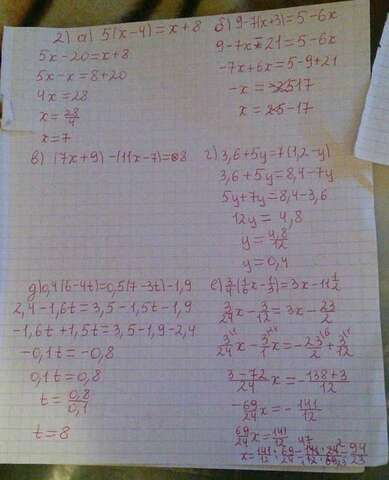 2) а) 5(x-4)=x+8
5x-20=x+8
5x-x=8+20
4x=28
x=28/4
x=7
б) 9-7(x+3)=5-6x
9-7x-21=5-6x
-7x+6x=5-9+21
-x=17
x=-17
в) (7x+9)-(11x-7)=8
г) 3,6+5y=7(1,2-y)
3,6+5y=8,4-7y
5y+7y=8,4-3,6
12y=4,8
y=4,8/12
y=0,4
д) 0,4(6-4t)=0,5(7-3t)-1,9
2,4-1,6t=3,5-1,5t-1,9
-1,6t+1,5t=3,5-1,9-2,4
-0,1t=-0,8
0,1t=0,8
t=0,8/0,1
t=8
е) 3/4(1/6x-1/3)=3x-11 1/2
3/24x-3/12=3x-23/2
3/24x-3/1x=-23/2+3/12
3-72/24x=-138+3/12
-69/24x=-141/12
69/24x=141/12